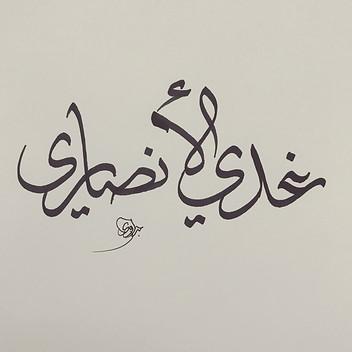 عدي الأنصاري